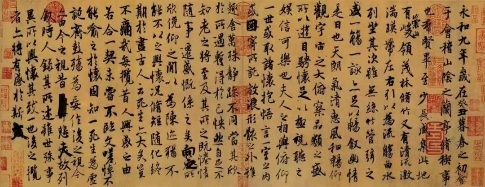 永和九年歲在癸丑暮春之初會
于會稽山陰之蘭亭脩稧事
也群賢畢至少長咸集此地
有崇山峻領茂林脩竹又有清流激
湍暎帶左右引以為流觴曲水
列坐其次雖無絲竹管弦之
盛一觴一詠亦足以暢敘幽情
是日也天朗氣清惠風和暢仰
觀宇宙之大俯察品類之盛
所以遊目騁懷足以極視聽之
娛信可樂也夫人之相與俯仰
一世或取諸懷抱悟言一室之內
或因寄所託放浪形骸之外雖
趣舍萬殊靜躁不同當其欣
於所遇暫得於己怏然自足不
知老之將至及其所之既惓情
隨事遷感慨係之矣向之所
欣俛仰之閒以為陳跡猶不
能不以之興懷況脩短隨化終
期於盡古人云死生亦大矣豈
不痛哉每攬昔人興感之由
若合一契未嘗不臨文嗟悼不
能喻之於懷固知一死生為虛
誕齊彭殤為妄作後之視今
亦由今之視昔悲夫故列
敘時人錄其所述雖世殊事
異所以興懷其致一也後之攬
者亦將有感於斯